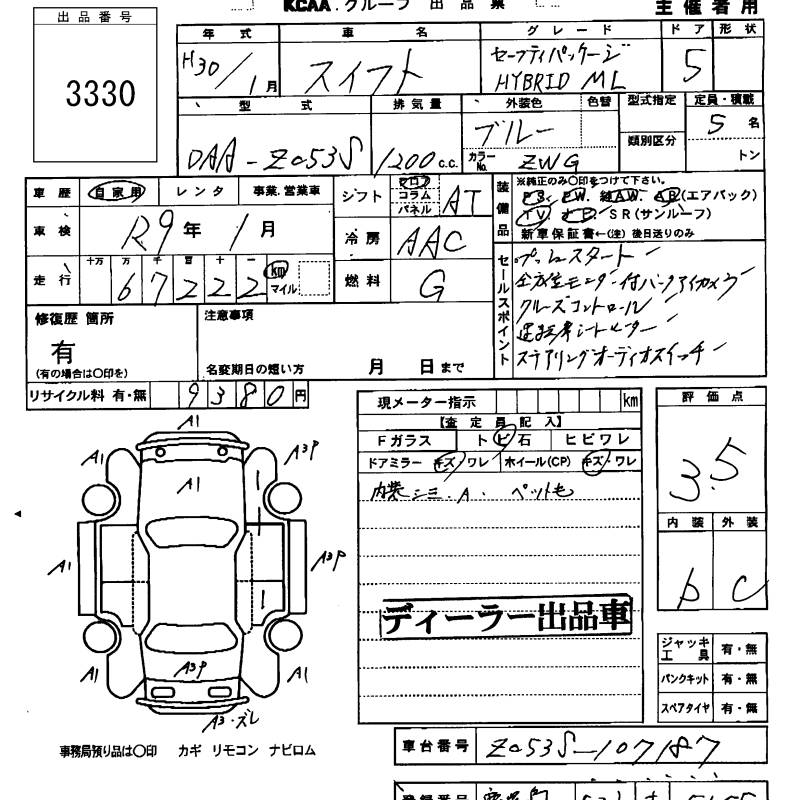 KCAA.グループ 出品票 主催者用
出品番号
3330
年式 車名 グレード ドア 形状
H30/1月 スイフト セーフティパッケージ HYBRID ML 5
型式 排気量 外装色 色替 型式指定 定員・積載
DAA-ZC53S 1200c.c. ブルー 類別区分 5名
カラーNo. ZWG トン
車歴 自家用 レンタ 事業.営業車
シフト フロア コラム パネル AT
装備品 ※純正のみ〇印をつけて下さい。
P.S. P.W. 純AW. AB(エアバック)
TV. ナビ. SR(サンルーフ)
新車保証書←(注) 後日送りのみ
車検 R9年 1月
冷房 AAC
走行 十万 万 千 百 十 一 km マイル
6 7 2 2 2
燃料 G
セールスポイント
プッシュスタート
全方位モニター付バックアイカメラ
クルーズコントロール
運転席シートヒーター
ステアリングオーディオスイッチ
修復歴 箇所
有
(有の場合は〇印を)
注意事項
名変期日の短い方 月 日まで
リサイクル料 有・無 9380円
現メーター指示 km
【査定員記入】
Fガラス トビ石 ヒビワレ
ドアミラー キズ・ワレ ホイール(CP) キズ・ワレ
内装シミ.A. ペット毛
ディーラー出品車
評価点
3.5
内装 外装
b C
ジャッキ工具 有・無
パンクキット 有・無
スペアタイヤ 有・無
A1
A1 A3P
A1
A1 A3P
A3P
A1 A1
A3・ズレ
事務局預り品は〇印 カギ リモコン ナビロム
車台番号 ZC53S-107187
登録番号